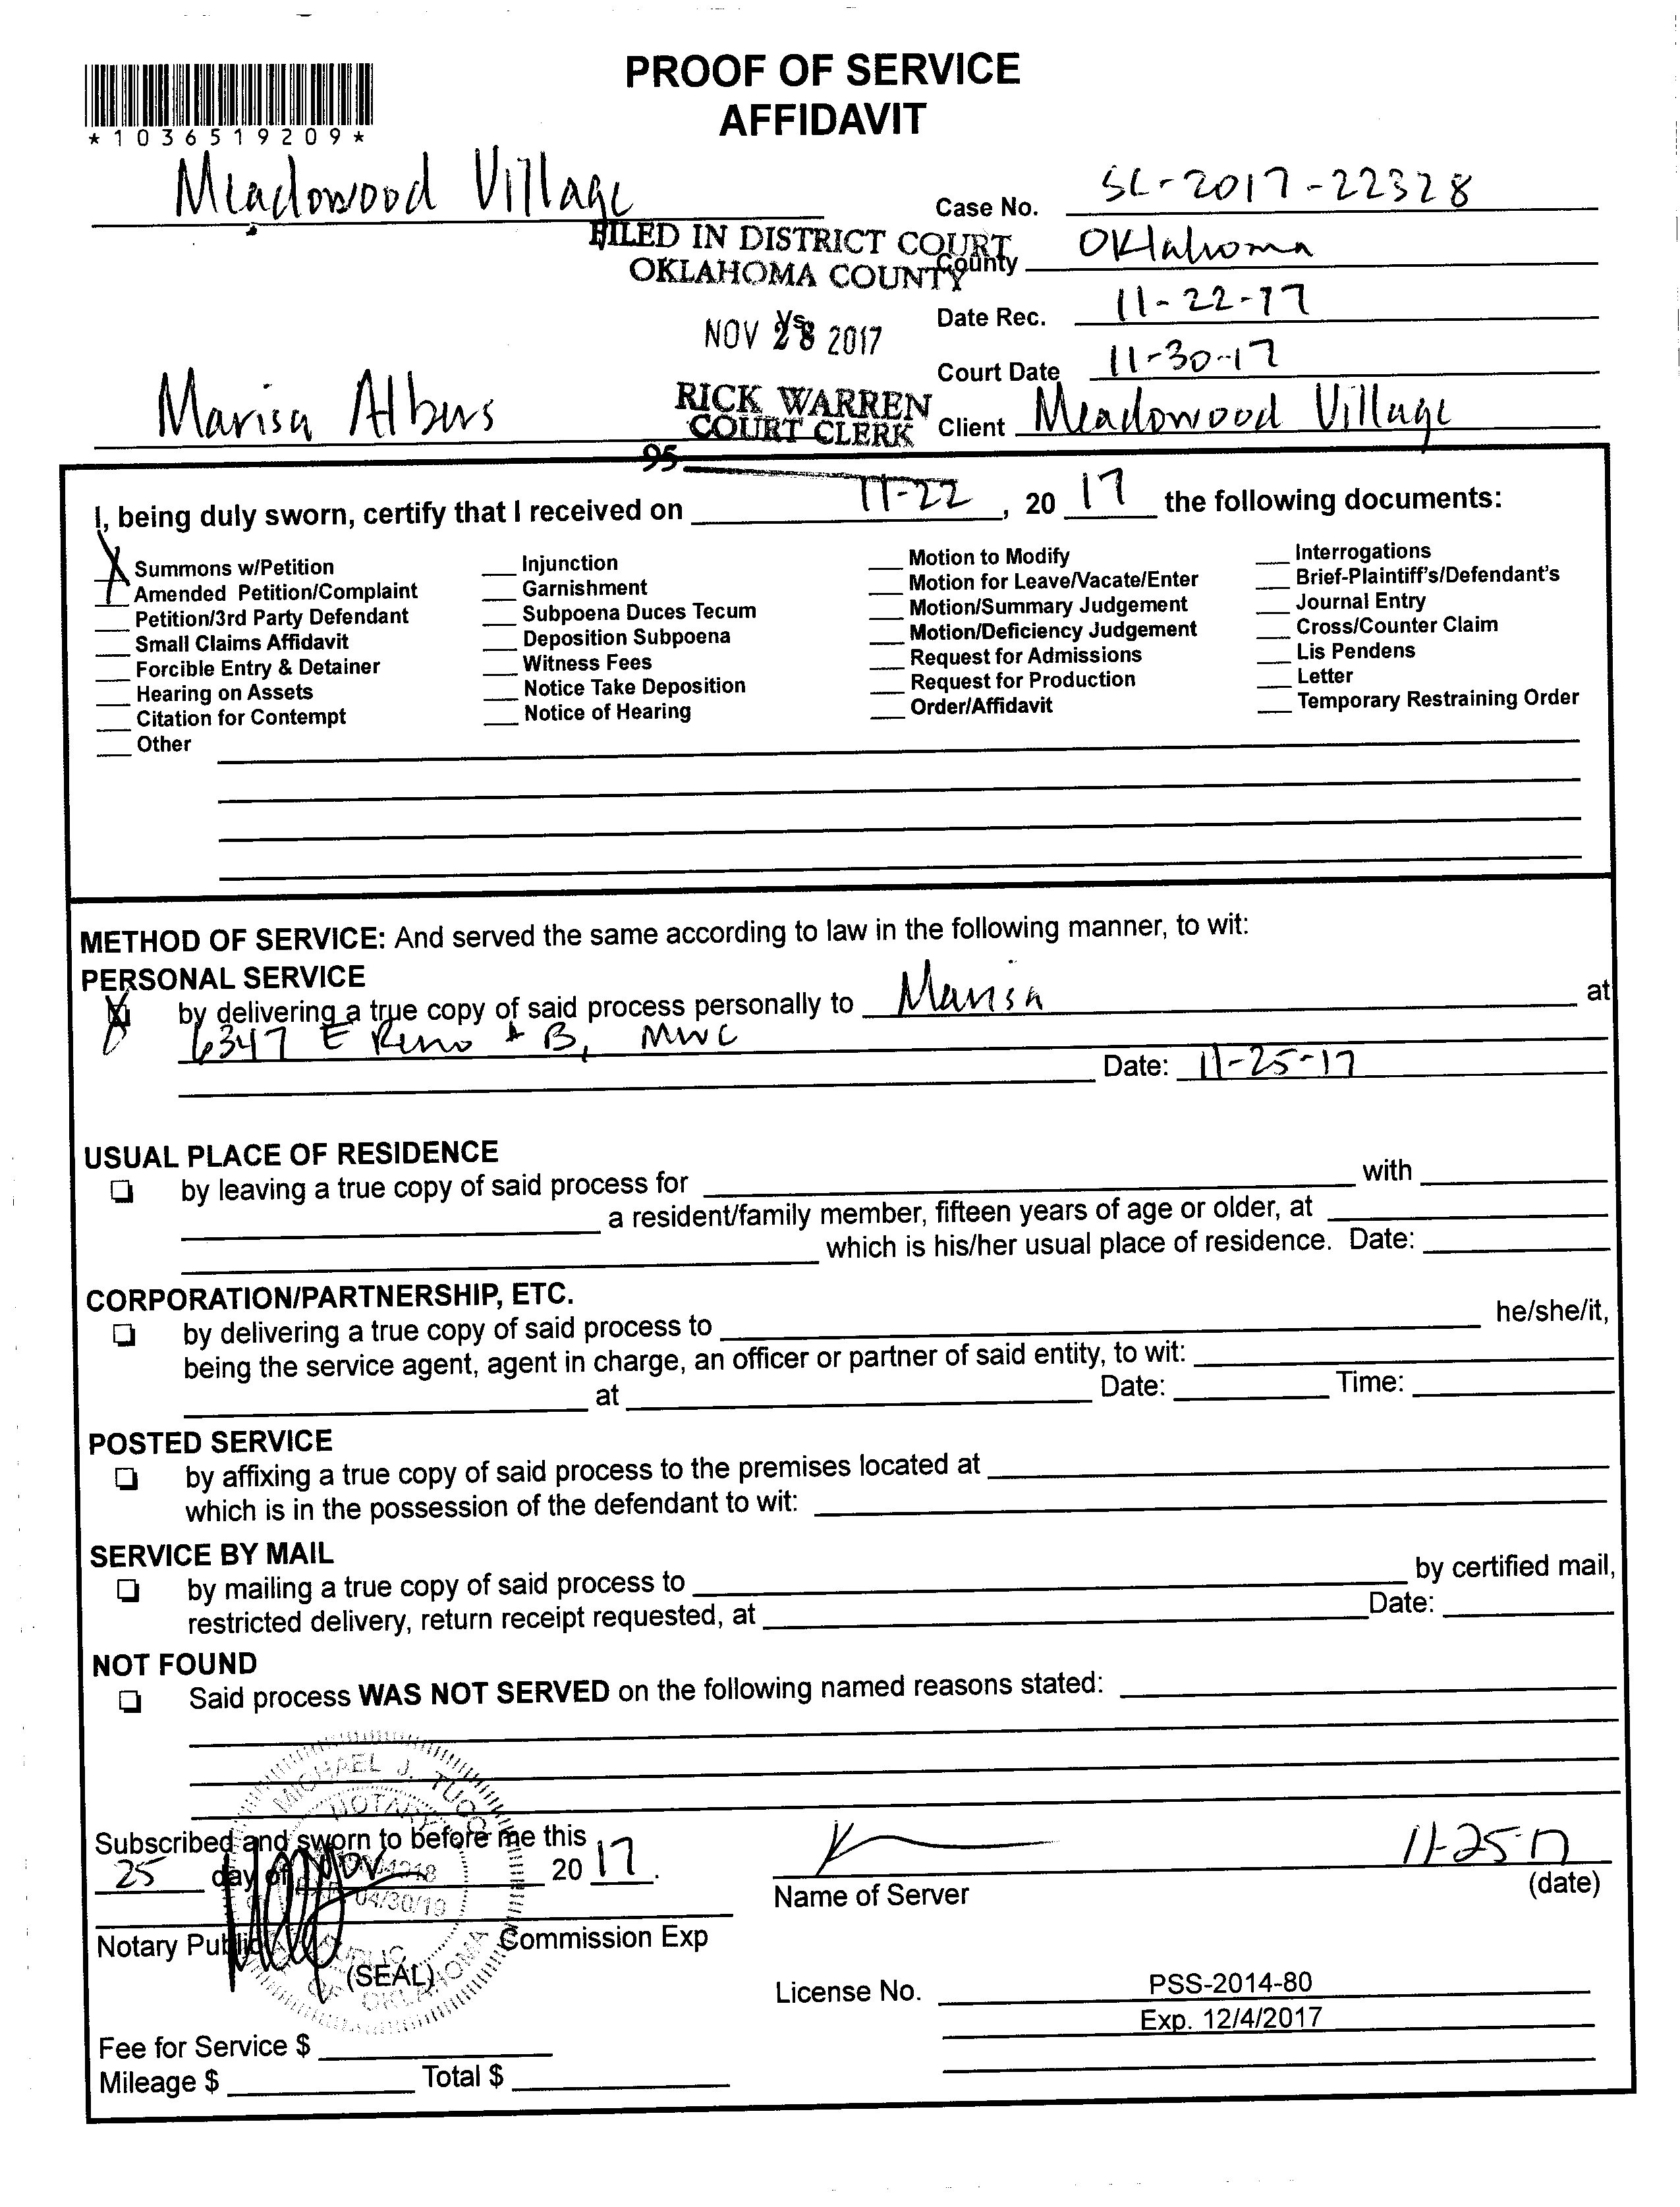 PROOF OF SERVICE
AFFIDAVIT
*1036519209*
Meadowood Village
Case No. SC-2017-22328
FILED IN DISTRICT COURT
OKLAHOMA COUNTY
County Oklahoma
Vs.
NOV 28 2017
Date Rec. 11-22-17
Court Date 11-30-17
Marisa Albers
RICK WARREN
COURT CLERK
Client Meadowood Village
95
I, being duly sworn, certify that I received on 11-22, 20 17 the following documents:
X Summons w/Petition
Amended Petition/Complaint
Petition/3rd Party Defendant
Small Claims Affidavit
Forcible Entry & Detainer
Hearing on Assets
Citation for Contempt
Other
Injunction
Garnishment
Subpoena Duces Tecum
Deposition Subpoena
Witness Fees
Notice Take Deposition
Notice of Hearing
Motion to Modify
Motion for Leave/Vacate/Enter
Motion/Summary Judgement
Motion/Deficiency Judgement
Request for Admissions
Request for Production
Order/Affidavit
Interrogations
Brief-Plaintiff's/Defendant's
Journal Entry
Cross/Counter Claim
Lis Pendens
Letter
Temporary Restraining Order
METHOD OF SERVICE: And served the same according to law in the following manner, to wit:
PERSONAL SERVICE
X by delivering a true copy of said process personally to Marisa at
6347 E Reno B, MWC
Date: 11-25-17
USUAL PLACE OF RESIDENCE
by leaving a true copy of said process for with
a resident/family member, fifteen years of age or older, at
which is his/her usual place of residence. Date:
CORPORATION/PARTNERSHIP, ETC.
by delivering a true copy of said process to he/she/it,
being the service agent, agent in charge, an officer or partner of said entity, to wit:
at Date: Time:
POSTED SERVICE
by affixing a true copy of said process to the premises located at
which is in the possession of the defendant to wit:
SERVICE BY MAIL
by mailing a true copy of said process to by certified mail,
restricted delivery, return receipt requested, at Date:
NOT FOUND
Said process WAS NOT SERVED on the following named reasons stated:
MICHAEL J.
NOTARY
PUBLIC
OF OKLAHOMA
04/30/19
Subscribed and sworn to before me this
25 day of Nov 20 17.
11-25-17
Name of Server (date)
Notary Public Commission Exp
(SEAL)
License No. PSS-2014-80
Exp. 12/4/2017
Fee for Service $
Mileage $ Total $